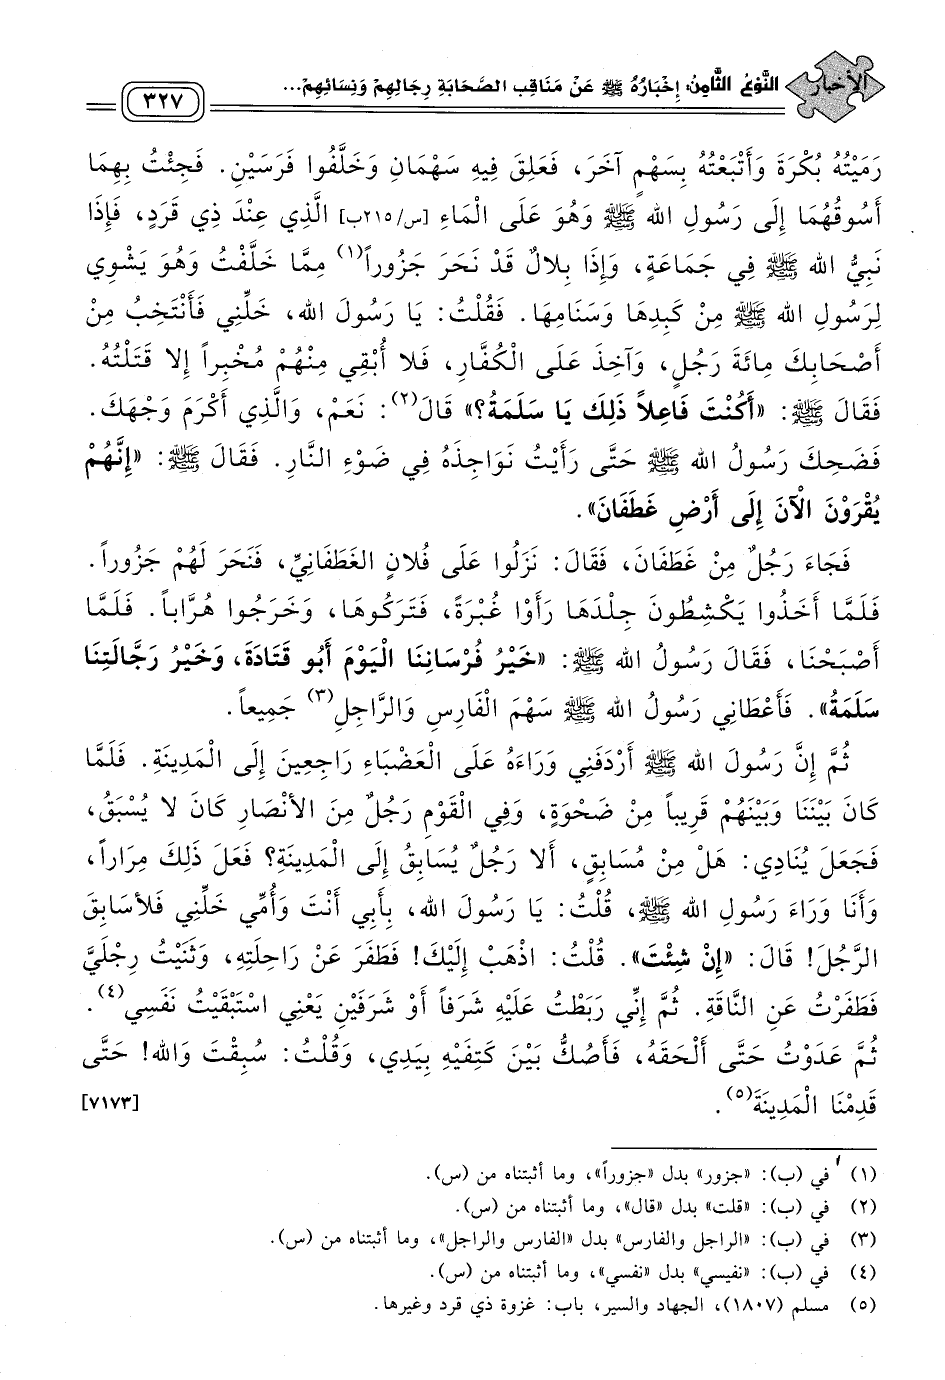 الأخبار
النَّوْعُ الثَّامِنُ: إِخْبَارُهُ ﷺ عَنْ مَنَاقِبِ الصَّحَابَةِ رِجَالِهِمْ وَنِسَائِهِمْ...
٣٢٧
رَمَيْتُهُ بُكْرَةَ وَأَتْبَعْتُهُ بِسَهْمٍ آخَرَ، فَعَلِقَ فِيهِ سَهْمَانِ وَخَلَّفُوا فَرَسَيْنِ. فَجِئْتُ بِهِمَا
أَسُوقُهُمَا إِلَى رَسُولِ اللهِ ﷺ وَهُوَ عَلَى الْمَاءِ [س/٢١٥ب] الَّذِي عِنْدَ ذِي قَرَدٍ، فَإِذَا
نَبِيُّ اللهِ ﷺ فِي جَمَاعَةٍ، وَإِذَا بِلَالٌ قَدْ نَحَرَ جَزُوراً(١) مِمَّا خَلَّفْتُ وَهُوَ يَشْوِي
لِرَسُولِ اللهِ ﷺ مِنْ كَبِدِهَا وَسَنَامِهَا. فَقُلْتُ: يَا رَسُولَ اللهِ، خَلِّنِي فَأَنْتَخِبُ مِنْ
أَصْحَابِكَ مِائَةَ رَجُلٍ، وَآخِذَ عَلَى الْكُفَّارِ، فَلا أُبْقِي مِنْهُمْ مُخْبِراً إِلا قَتَلْتُهُ.
فَقَالَ ﷺ: «أَكُنْتَ فَاعِلاً ذَلِكَ يَا سَلَمَةُ؟» قَالَ(٢): نَعَمْ، وَالَّذِي أَكْرَمَ وَجْهَكَ.
فَضَحِكَ رَسُولُ اللهِ ﷺ حَتَّى رَأَيْتُ نَوَاجِذَهُ فِي ضَوْءِ النَّارِ. فَقَالَ ﷺ: «إِنَّهُمْ
يُقْرَوْنَ الْآنَ إِلَى أَرْضِ غَطَفَانَ».
فَجَاءَ رَجُلٌ مِنْ غَطَفَانَ، فَقَالَ: نَزَلُوا عَلَى فُلانٍ الغَطَفَانِيِّ، فَنَحَرَ لَهُمْ جَزُوراً.
فَلَمَّا أَخَذُوا يَكْشِطُونَ جِلْدَهَا رَأَوْا غُبْرَةً، فَتَرَكُوهَا، وَخَرَجُوا هُرَّاباً. فَلَمَّا
أَصْبَحْنَا، فَقَالَ رَسُولُ اللهِ ﷺ: «خَيْرُ فُرْسَانِنَا الْيَوْمَ أَبُو قَتَادَةَ، وَخَيْرُ رَجَّالَتِنَا
سَلَمَةُ». فَأَعْطَانِي رَسُولُ اللهِ ﷺ سَهْمَ الْفَارِسِ وَالرَّاجِلِ(٣) جَمِيعاً.
ثُمَّ إِنَّ رَسُولَ اللهِ ﷺ أَرْدَفَنِي وَرَاءَهُ عَلَى الْعَضْبَاءِ رَاجِعِينَ إِلَى الْمَدِينَةِ. فَلَمَّا
كَانَ بَيْنَنَا وَبَيْنَهُمْ قَرِيباً مِنْ ضَحْوَةٍ، وَفِي الْقَوْمِ رَجُلٌ مِنَ الأَنْصَارِ كَانَ لا يُسْبَقُ،
فَجَعَلَ يُنَادِي: هَلْ مِنْ مُسَابِقٍ، أَلا رَجُلٌ يُسَابِقُ إِلَى الْمَدِينَةِ؟ فَعَلَ ذَلِكَ مِرَاراً،
وَأَنَا وَرَاءَ رَسُولِ اللهِ ﷺ، قُلْتُ: يَا رَسُولَ اللهِ، بِأَبِي أَنْتَ وَأُمِّي خَلِّنِي فَلأُسَابِقَ
الرَّجُلَ! قَالَ: «إِنْ شِئْتَ». قُلْتُ: اذْهَبْ إِلَيْكَ! فَطَفَرَ عَنْ رَاحِلَتِهِ، وَثَنَيْتُ رِجْلَيَّ
فَطَفَرْتُ عَنِ النَّاقَةِ. ثُمَّ إِنِّي رَبَطْتُ عَلَيْهِ شَرَفاً أَوْ شَرَفَيْنِ يَعْنِي اسْتَبْقَيْتُ نَفَسِي(٤).
ثُمَّ عَدَوْتُ حَتَّى أَلْحَقَهُ، فَأَصُكُّ بَيْنَ كَتِفَيْهِ بِيَدِي، وَقُلْتُ: سُبِقْتَ وَاللهِ! حَتَّى
قَدِمْنَا الْمَدِينَةَ(٥). [٧١٧٣]
(١) في (ب): «جزور» بدل «جزوراً»، وما أثبتناه من (س).
(٢) في (ب): «قلت» بدل «قال»، وما أثبتناه من (س).
(٣) في (ب): «الراجل والفارس» بدل «الفارس والراجل»، وما أثبتناه من (س).
(٤) في (ب): «نفيسي» بدل «نفسي»، وما أثبتناه من (س).
(٥) مسلم (١٨٠٧)، الجهاد والسير، باب: غزوة ذي قرد وغيرها.